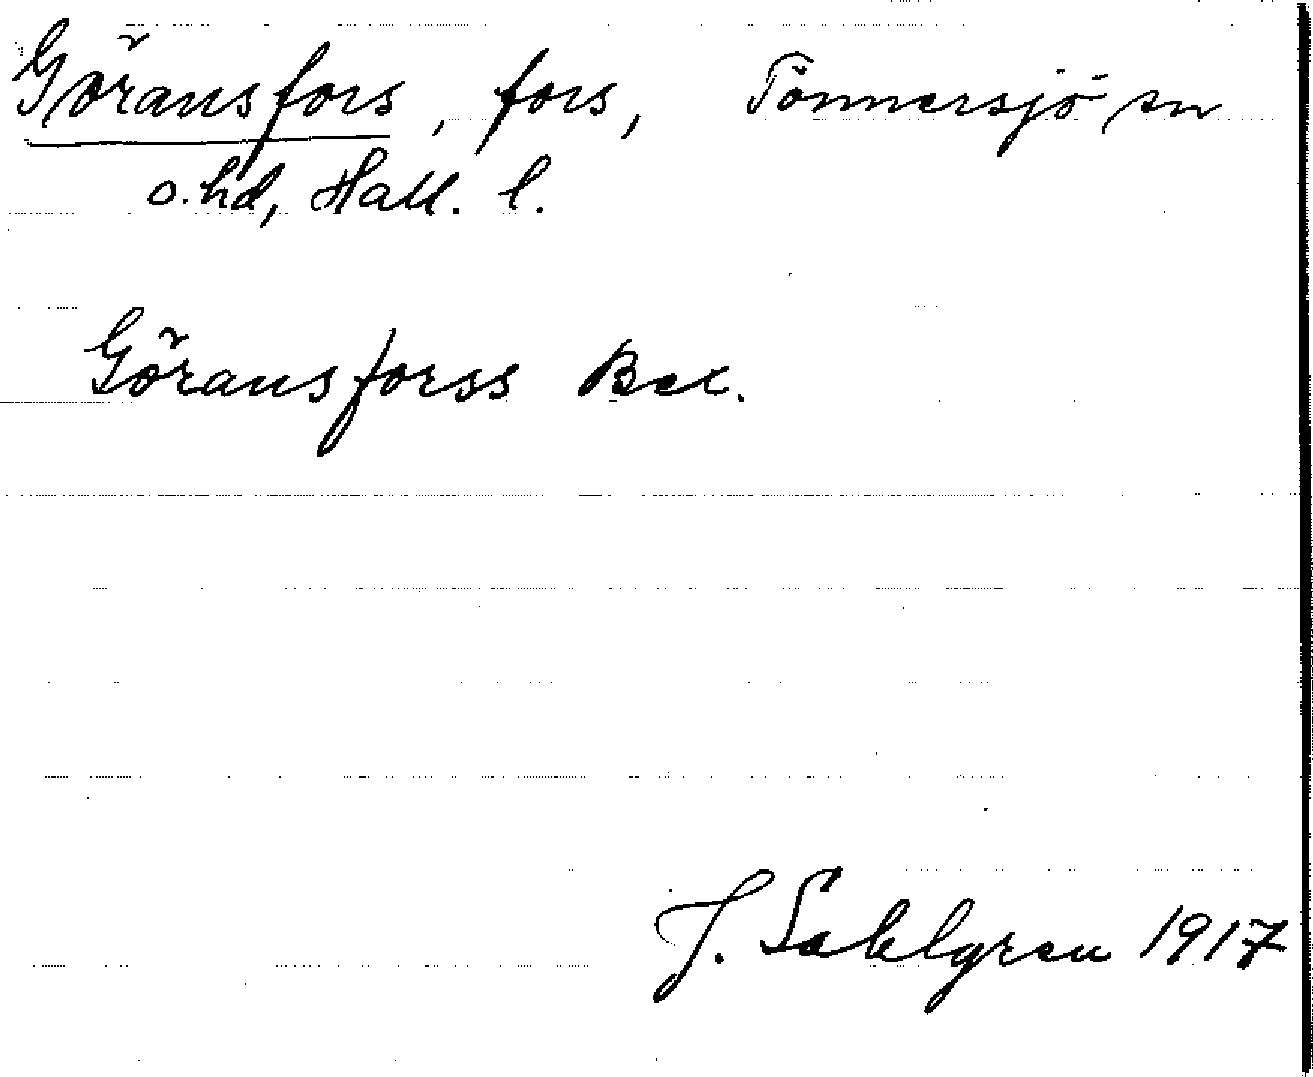 Göransfors, fors, Tönnersjö sn
o. hd, Hall. l.
Göransforss Bex.
J. Sahlgren 1917